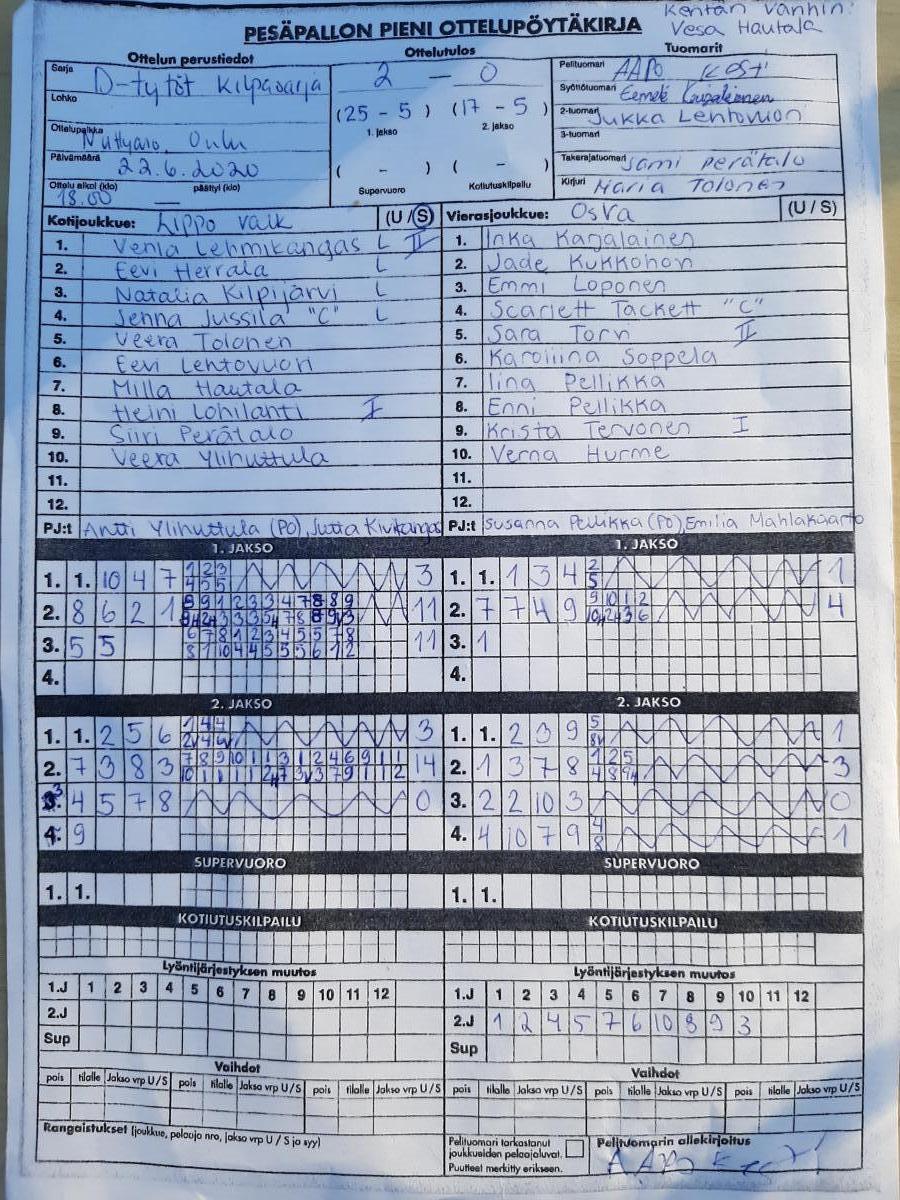 Kentän vanhin:
Vesa Hautala
PESÄPALLON PIENI OTTELUPÖYTÄKIRJA
Ottelun perustiedot Ottelutulos Tuomarit
Sarja D-tytöt Kilpasarja
Lohko
Ottelupaikka Oulu
Päivämäärä 22.6.2020
Ottelu alkoi (klo) päättyi (klo)
18.00 —
2 — 0
(25 - 5) (17 - 5)
1. jakso 2. jakso
( - ) ( - )
Supervuoro Kotiutuskilpailu
Pelituomari AAPO KOSTI
Syöttötuomari Eemeli
2-tuomari Jukka Lehtovuori
3-tuomari
Takarajatuomari Sami Perätalo
Kirjuri Maria Tolonen
Kotijoukkue: Lippo Valk (U / S)
1. Venla Lehmikangas L II
2. Eevi Herrala L
3. Natalia Kilpijärvi L
4. Jenna Jussila "C" L
5. Veera Tolonen
6. Eevi Lehtovuori
7. Milla Hautala
8. Heini Lohilahti I
9. Siiri Perätalo
10. Veera Ylihuttula
11.
12.
PJ:t Antti Ylihuttula (PO), Jutta Kivikangas
Vierasjoukkue: OsVa (U / S)
1. Inka Karjalainen
2. Jade Kukkohon
3. Emmi Loponen
4. Scarlett Tackett "C"
5. Sara Torvi II
6. Karoliina Soppela
7. Iina Pellikka
8. Enni Pellikka
9. Krista Tervonen I
10. Verna Hurme
11.
12.
PJ:t Susanna Pellikka (PO), Emilia Mahlakaarto
1. JAKSO
1. 1. 10 4 7 1 2 3 3
4 5 5
2. 8 6 2 1 11
3. 5 5 6 7 8 1 2 3 4 5 5 7 8 11
8 1 10 4 4 5 5 5 6 1 2
4.
1. JAKSO
1. 1. 1 3 4 2 1
5
2. 7 7 4 9 9 10 1 2 4
3. 1
4.
2. JAKSO
1. 1. 2 5 6 1 4 4 3
2. 7 3 8 3 14
3. 4 5 7 8 0
4. 9
2. JAKSO
1. 1. 2 3 9 5 1
8v
2. 1 3 7 8 1 2 5 3
3. 2 2 10 3 0
4. 4 10 7 9 4 1
8
SUPERVUORO SUPERVUORO
1. 1. 1. 1.
KOTIUTUSKILPAILU KOTIUTUSKILPAILU
Lyöntijärjestyksen muutos
1.J 1 2 3 4 5 6 7 8 9 10 11 12
2.J
Sup
Lyöntijärjestyksen muutos
1.J 1 2 3 4 5 6 7 8 9 10 11 12
2.J 1 2 4 5 7 6 10 8 9 3
Sup
Vaihdot Vaihdot
pois tilalle Jakso vrp U/S pois tilalle Jakso vrp U/S pois tilalle Jakso vrp U/S
pois tilalle Jakso vrp U/S pois tilalle Jakso vrp U/S pois tilalle Jakso vrp U/S
Rangaistukset (joukkue, pelaaja nro, jakso vrp U / S ja syy)
Pelituomari tarkastanut
joukkueiden pelaajaluvat.
Puutteet merkitty erikseen.
Pelituomarin allekirjoitus